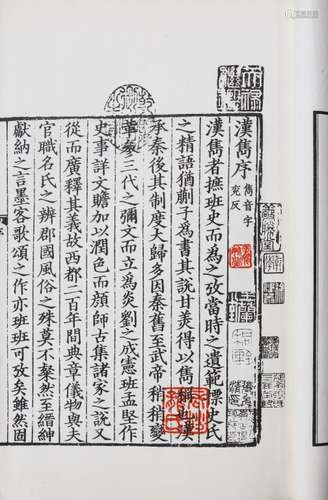 漢雋序
雋音字
兖反
漢雋者摭班史而為之攷當時之遺範摽史氏
之精語猶蒯子為書其說甘羙得以雋稱也漢
承秦後其制度大歸多因秦舊至武帝稍稍變
革象三代之彌文而立為炎劉之成憲班孟堅作
史事詳文贍加以潤色而顔師古集諸家之說又
從而廣釋其義故西都二百年間典章儀物與夫
官職名氏之辨郡國風俗之殊莫不粲然至縉紳
獻納之言墨客歌頌之作亦班班可攷矣雖然固